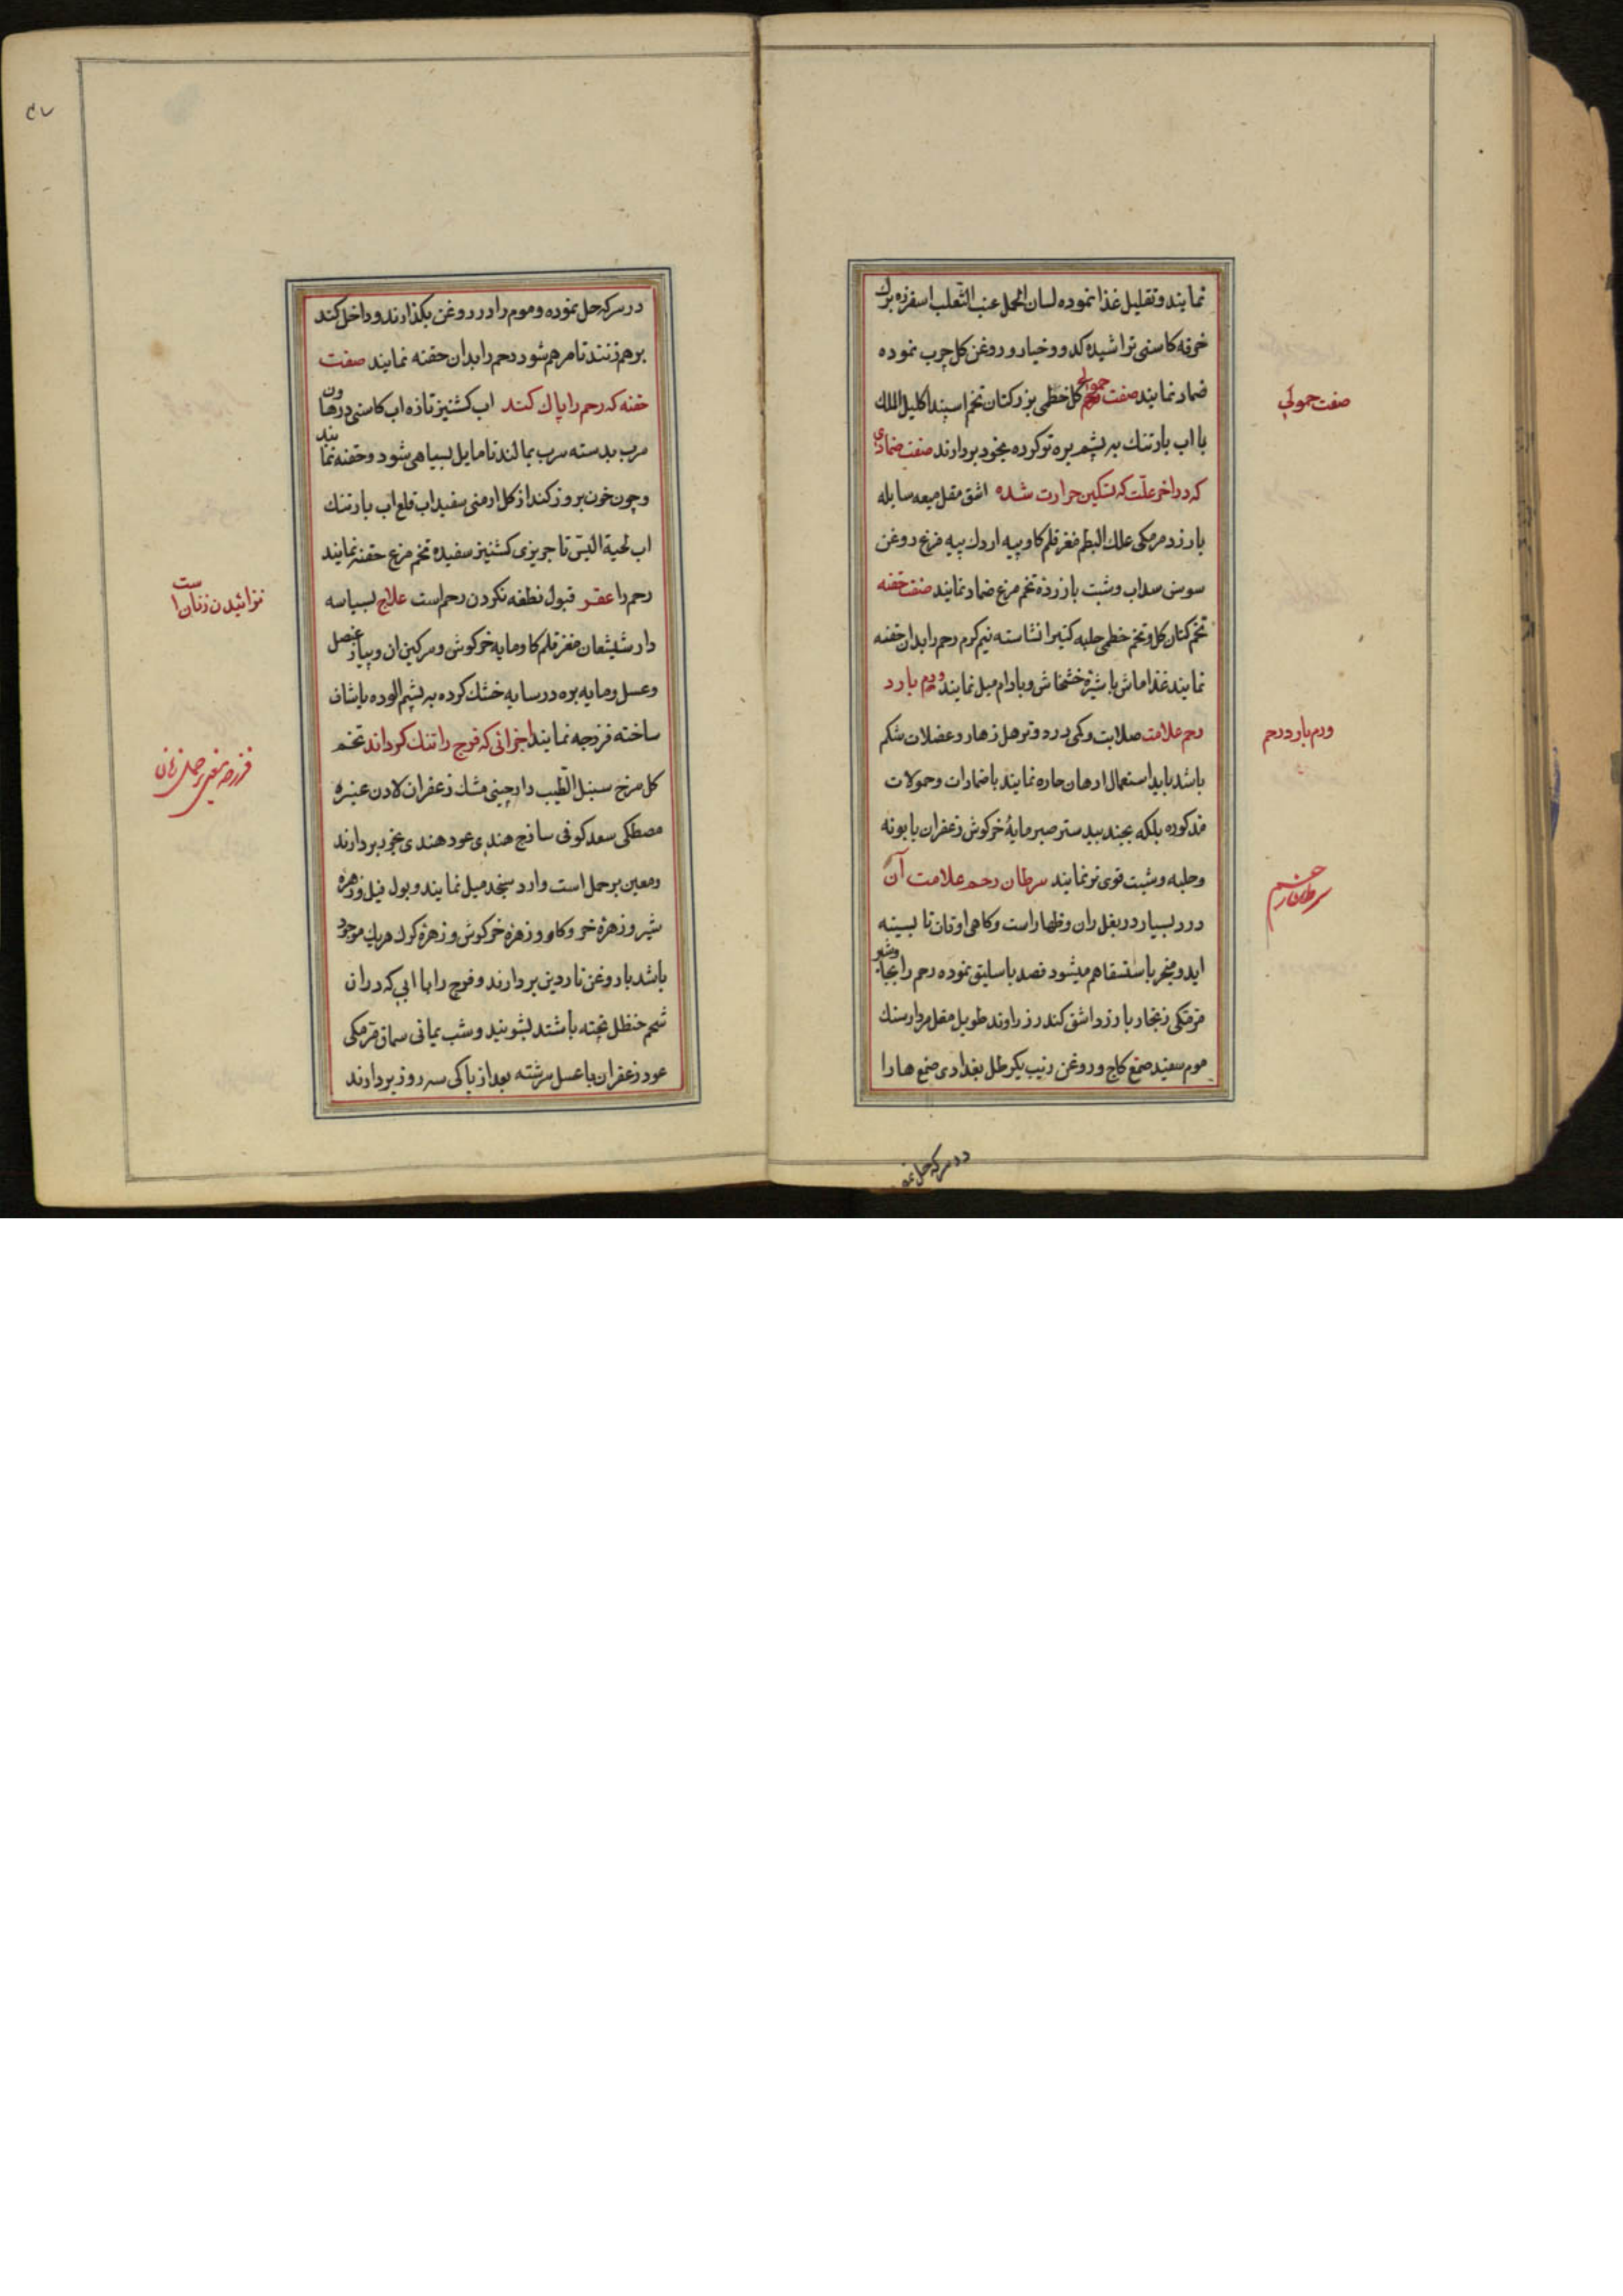 نمایند و تقلیل غذا نموده لسان الحمل عنب الثعلب اسفرزه برک
خرفه کاسنی تراشیده کدو و خیار و روغن کل چرب نموده
ضماد نمایند صفت حمولی کل خطمی بزرکتان تخم اسپند اکلیل الملک
با اب بارتنک به پشم بره تو کرده بخود بردارند صفت ضمادی
که در اخر علّت که تسکین حرارت شده اشق مقل میعه سایله
بارزد مرمکی علک البطم مغز قلم کاو پیه اردک پیه مرغ روغن
سوسن سداب و شبت با زرده تخم مرغ ضماد نمایند صفت حقنه
تخم کتان کل و تخم خطمی حلبه کتیرا نشاسته نیم کرم رحم را بدان حقنه
نمایند غذا ماش با شیرۀ خشخاش و بادام میل نمایند ورم بارد
رحم علامت صلابت و کمی درد و ترهل زهار و عضلات شکم
باشد باید استعمال ادهان حاره نمایند با ضمادات و حمولات
مذکوره بلکه بجند بیدستر صبر مایۀ خرکوش زعفران بابونه
و حلبه و شبت قوی تر نمایند سرطان رحم علامت آن
درد بسیار در بغل ران و زهار است و کاهی اوقات تا بسینه
اید و منجر باستسقا هم میشود فصد باسلیق نموده رحم را بجا
مرمکی زنجار بارزد اشق کندر زراوند طویل مقل مردارسنک
موم سفید صمغ کاج و روغن زنبق یکرطل بغدادی صمغ ها را
صفت حمولی
ورم بارد رحم
سرطان رحم
در سرکه حل نمو
در سرکه حل نموده و موم را در روغن بکذارند و داخل کند
برهم زنند تا مرهم شود رحم را بدان حقنه نمایند صفت
حقنه که رحم را پاک کند اب کشنیز تازه اب کاسنی در هاون
سرب بدسته سرب بمالند تا مایل بسیاهی شود و حقنه نمایند
و چون خون بروز کند از کل ارمنی سفیداب قلع اب بارتنک
اب لحیة التیس تاجریزی کشنیز سفیده تخم مرغ حقنه نمایند
رحم را عقر قبول نطفه نکردن رحم است علاج بسباسه
دارشیشعان مغز قلم کاو مایه خرکوش و سرکین ان و پیاز عنصل
و عسل و مایه بره در سایه خشک کرده به پشم الوده یا شاف
ساخته فرزجه نمایند اجزائی که فرج را تنک کرداند تخم
کل سرخ سنبل الطیب دارچینی مشک زعفران لادن عنبره
مصطکی سعد کوفی ساذج هندی عود هندی بخود بردارند
و معین بر حمل است وارد سنجد میل نمایند و بول فیل و زهره
شیر و زهرۀ خر و کاو و زهرۀ خرکوش و زهرۀ کرک هریک موجود
باشد با روغن ناردین بردارند و فرج را با ابی که در ان
شحم حنظل پخته باشند بشویند و شب یمانی سماق مرمکی
عود زعفران با عسل سرشته بعد از پاکی سه روز بردارند
نزائیدن زنان است
فرزجه معین حمل زنان
۴۷